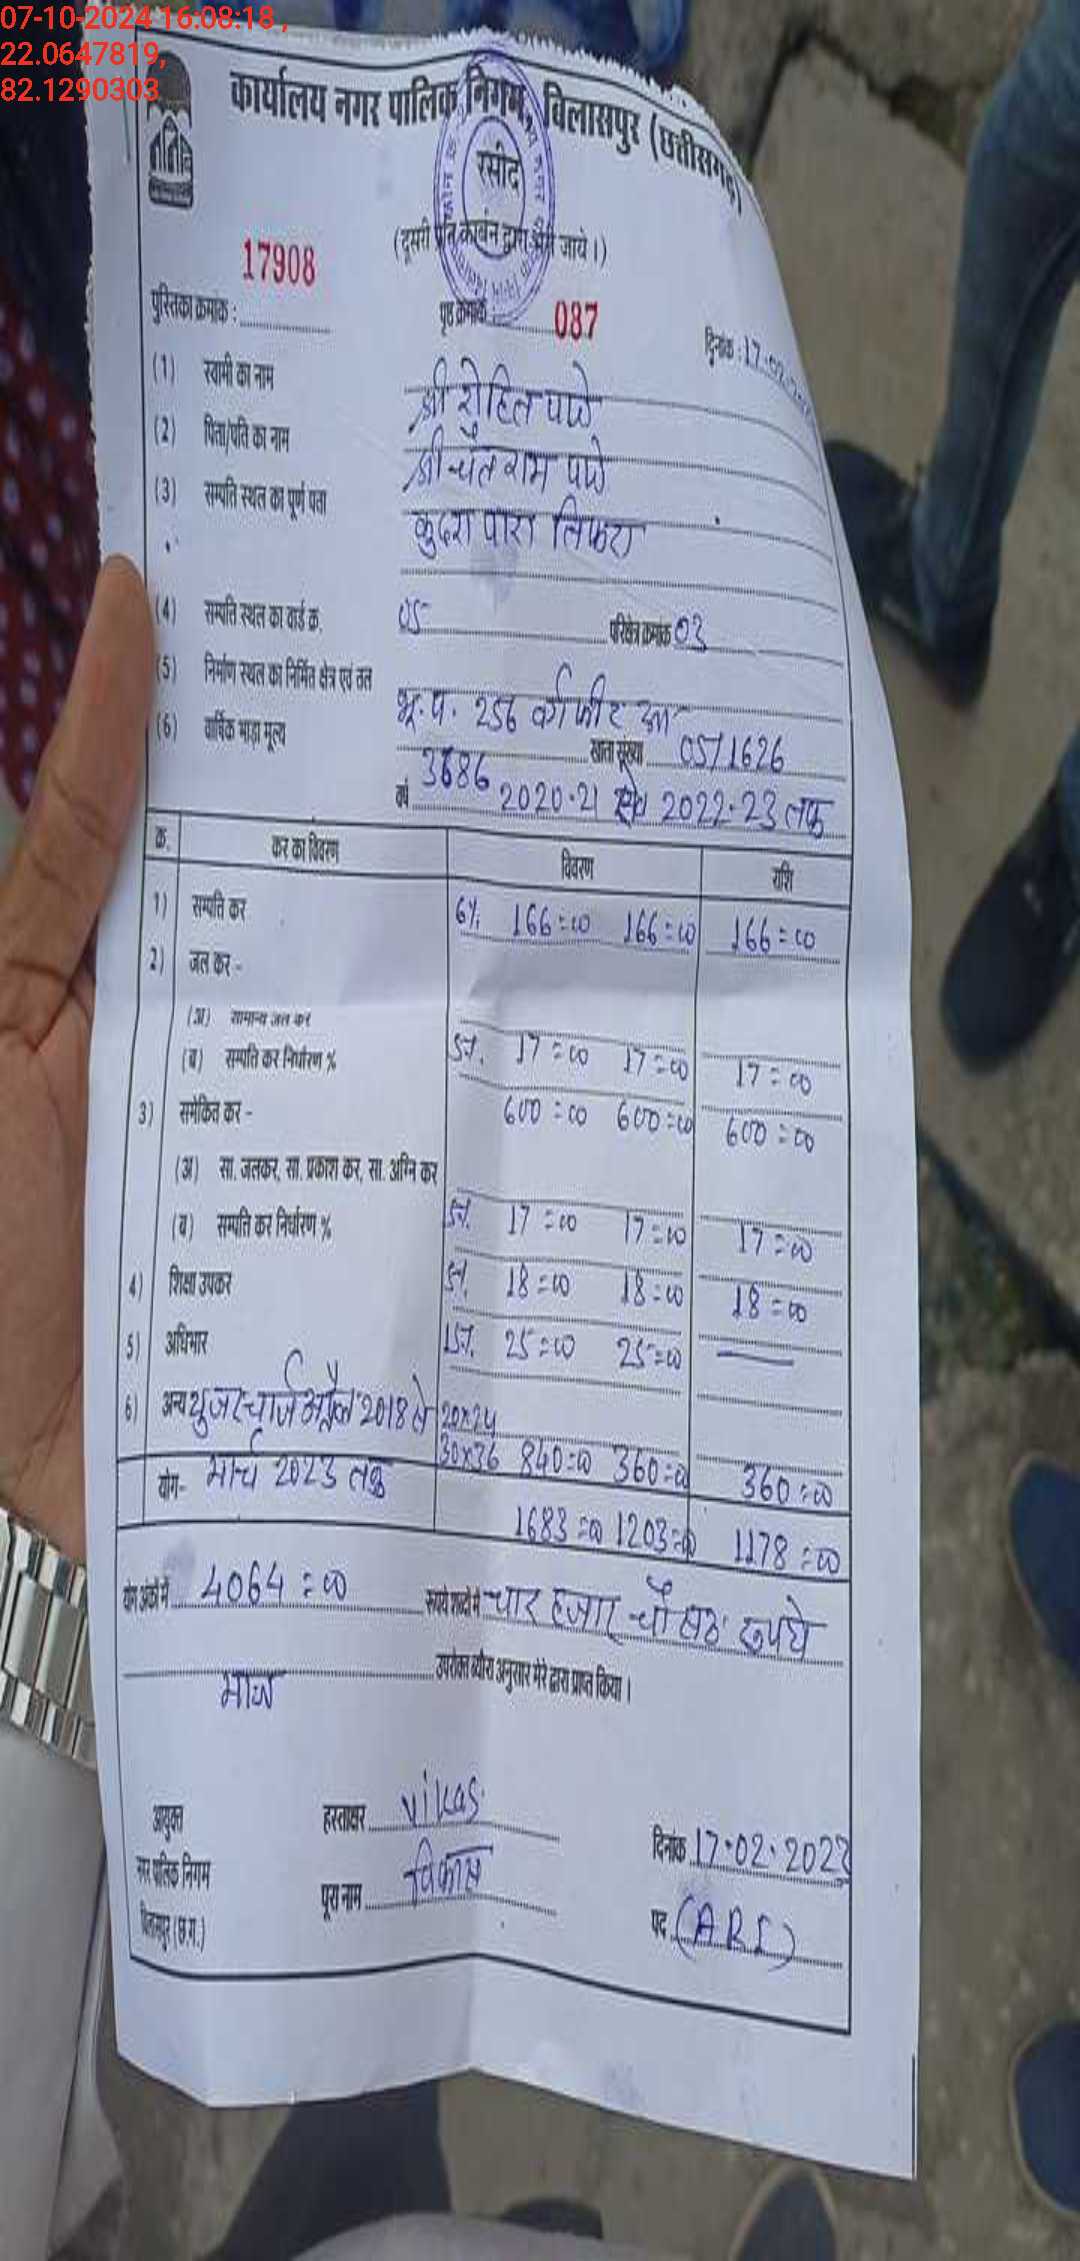 07-10-2024 16:08:18 ,
22.0647819,
82.1290303
कार्यालय नगर पालिक निगम, बिलासपुर (छत्तीसगढ़)
रसीद
(दूसरी प्रति कार्बन द्वारा जाये।)
पुस्तिका क्रमांक : 17908 पृष्ठ क्रमांक : 087 दिनांक : 17.02
(1) स्वामी का नाम श्री रोहित पाळे
(2) पिता/पति का नाम श्री चैत राम पाळे
(3) सम्पति स्थल का पूर्ण पता कुदरा पारा तिफरा
(4) सम्पति स्थल का वार्ड क्र. 05 परिक्षेत्र क्रमांक 03
(5) निर्माण स्थल का निर्मित क्षेत्र एवं तल भू.प. 256 वर्ग फीट
(6) वार्षिक भाड़ा मूल्य 3686 खाता संख्या 05/1626
वर्ष 2020-21 2022-23 तक
क्र. कर का विवरण विवरण राशि
1) सम्पति कर 6% 166=00 166=00 166=00
2) जल कर -
(अ) सामान्य जल कर
(ब) सम्पति कर निर्धारण % 5%. 17=00 17=00 17=00
3) समेकित कर - 600=00 600=00 600=00
(अ) सा. जलकर, सा. प्रकाश कर, सा. अग्नि कर
(ब) सम्पति कर निर्धारण % 5%. 17=00 17=00 17=00
4) शिक्षा उपकर 5%. 18=00 18=00 18=00
5) अधिभार 15%. 25=00 25=00 —
6) अन्य यूजर चार्ज अप्रैल 2018 से 20x24
30x36 840=00 360=00 360=00
योग- मार्च 2023 तक 1683=00 1203=00 1178=00
योग अंकों में 4064=00 रूपये शब्दों में चार हजार चौसठ रूपये
मात्र उपरोक्त ब्यौरा अनुसार मेरे द्वारा प्राप्त किया।
आयुक्त हस्ताक्षर vikas दिनांक 17.02.2022
नगर पालिक निगम पूरा नाम विकास पद (ARI)
बिलासपुर (छ.ग.)